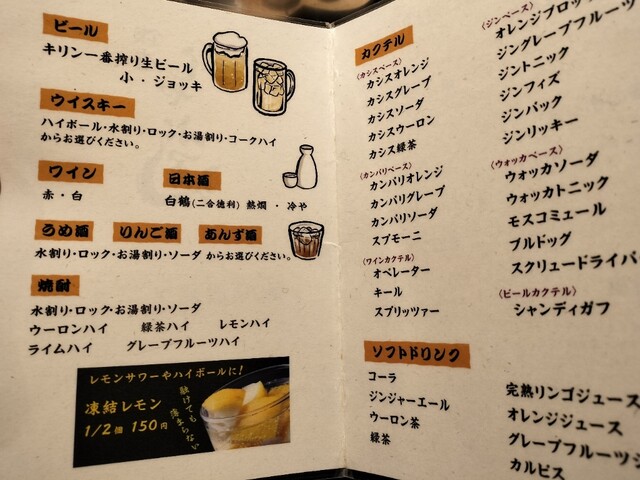 ビール
キリン一番搾り生ビール
小・ジョッキ
ウイスキー
ハイボール・水割り・ロック・お湯割り・コークハイ
からお選びください。
ワイン
赤・白
日本酒
白鶴(二合徳利) 熱燗・冷や
うめ酒 りんご酒 あんず酒
水割り・ロック・お湯割り・ソーダ からお選びください。
焼酎
水割り・ロック・お湯割り・ソーダ
ウーロンハイ 緑茶ハイ レモンハイ
ライムハイ グレープフルーツハイ
レモンサワーやハイボールに!
凍結レモン
1/2個 150円
融けても
薄まらない
カクテル
(カシスベース)
カシスオレンジ
カシスグレープ
カシスソーダ
カシスウーロン
カシス緑茶
(カンパリベース)
カンパリオレンジ
カンパリグレープ
カンパリソーダ
スプモーニ
(ワインカクテル)
オペレーター
キール
スプリッツァー
(ジンベース)
オレンジブロッ
ジングレープフルーツ
ジントニック
ジンフィズ
ジンバック
ジンリッキー
(ウォッカベース)
ウォッカソーダ
ウォッカトニック
モスコミュール
ブルドッグ
スクリュードライバ
(ビールカクテル)
シャンディガフ
ソフトドリンク
コーラ
ジンジャーエール
ウーロン茶
緑茶
完熟リンゴジュース
オレンジジュース
グレープフルーツジ
カルピス